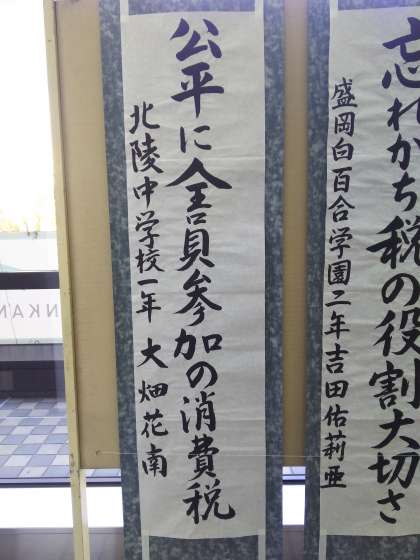 忘れがち税の役割大切さ
盛岡白百合学園二年 吉田佑莉亜
公平に全員参加の消費税
北陵中学校一年 大畑花南
NKAN